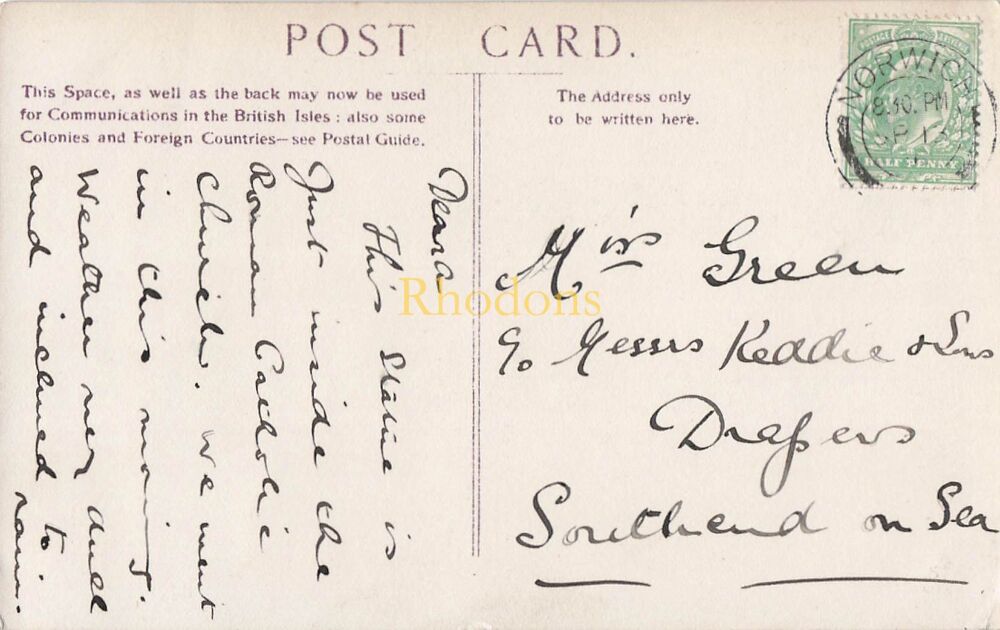 POST CARD.
This Space, as well as the back may now be used
for Communications in the British Isles : also some
Colonies and Foreign Countries—see Postal Guide.
The Address only
to be written here.
NORWICH
8.30. PM
SP 13
HALF PENNY
Miss Green
c/o Messrs Keddie & Sons
Drapers
Southend on Sea
This Statue is
Just inside the
Roman Catholic
Church. We went
in this morning.
Weather very dull
and inclined to
rain.
Rhodons